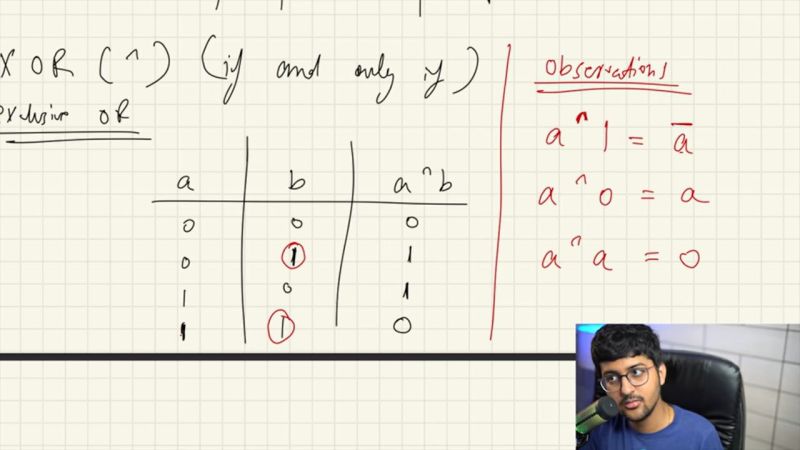 XOR (^) (if and only if)
exclusive OR
a b a^b
0 0 0
0 1 1
1 0 1
1 1 0
Observations
a ^ 1 = ā
a ^ 0 = a
a ^ a = 0